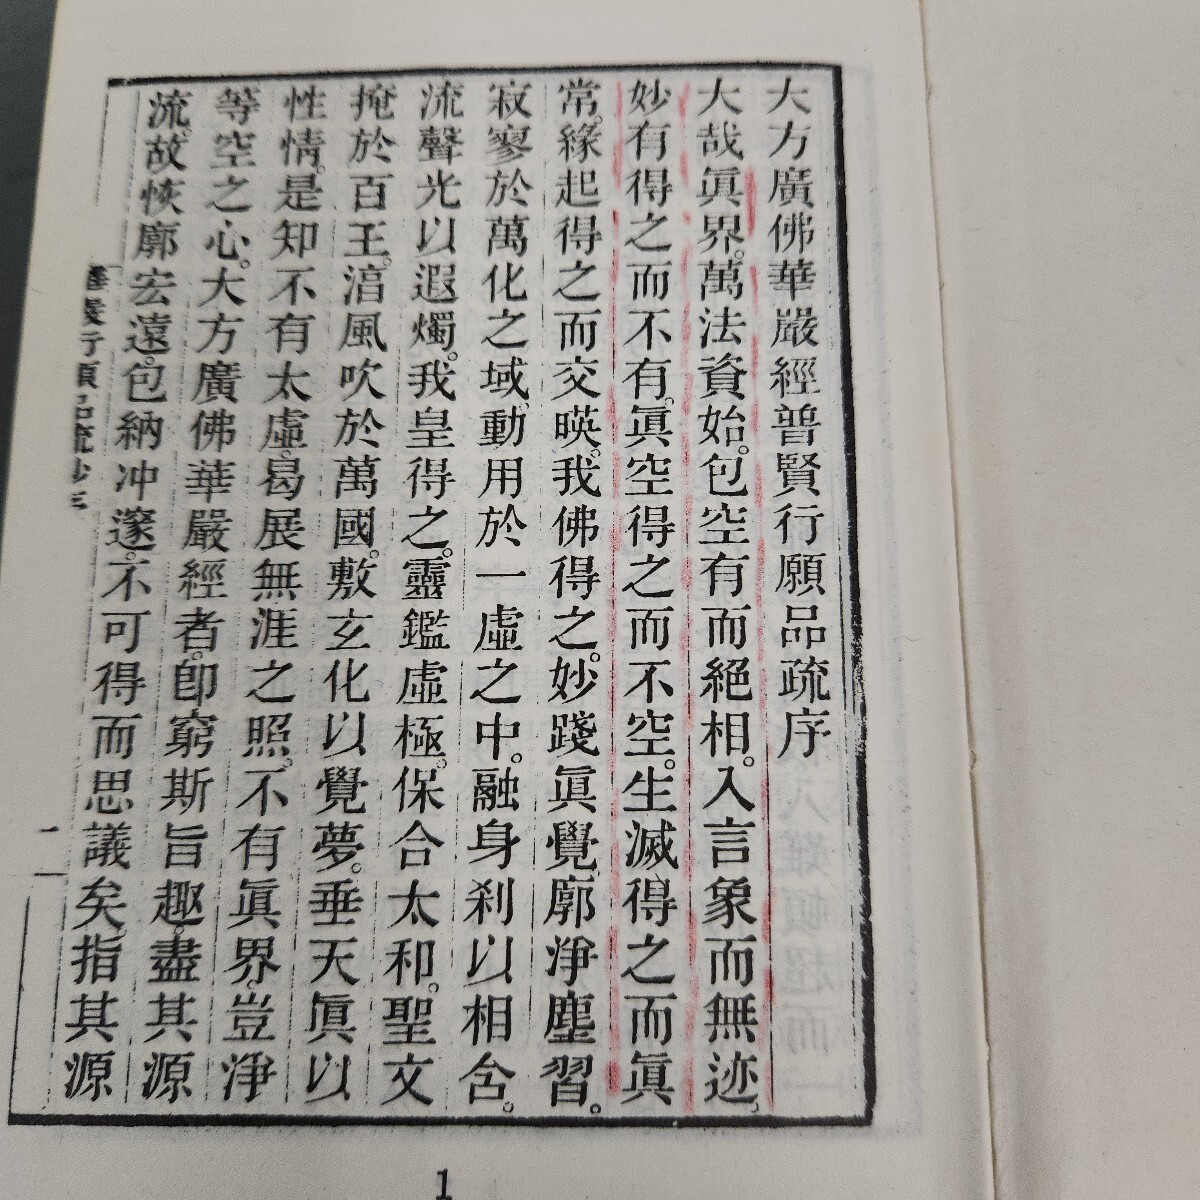 大方廣佛華嚴經普賢行願品疏序
大哉眞界。萬法資始。包空有而絕相。入言象而無迹。
妙有得之而不有。眞空得之而不空。生滅得之而眞
常。緣起得之而交暎。我佛得之。妙踐眞覺。廓淨塵習。
寂寥於萬化之域。動用於一虛之中。融身刹以相含。
流聲光以遐燭。我皇得之。靈鑑虛極。保合太和。聖文
掩於百王。淳風吹於萬國。敷玄化以覺夢。垂天眞以
性情。是知不有太虛。曷展無涯之照。不有眞界。豈淨
等空之心。大方廣佛華嚴經者。卽窮斯旨趣。盡其源
流。故恢廓宏遠。包納冲邃。不可得而思議矣。指其源
華嚴行願品疏鈔
1